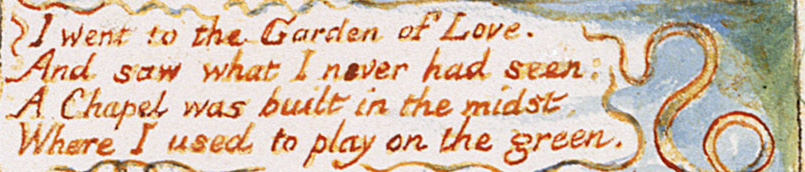 I went to the Garden of Love.
And saw what I never had seen:
A Chapel was built in the midst,
Where I used to play on the green.